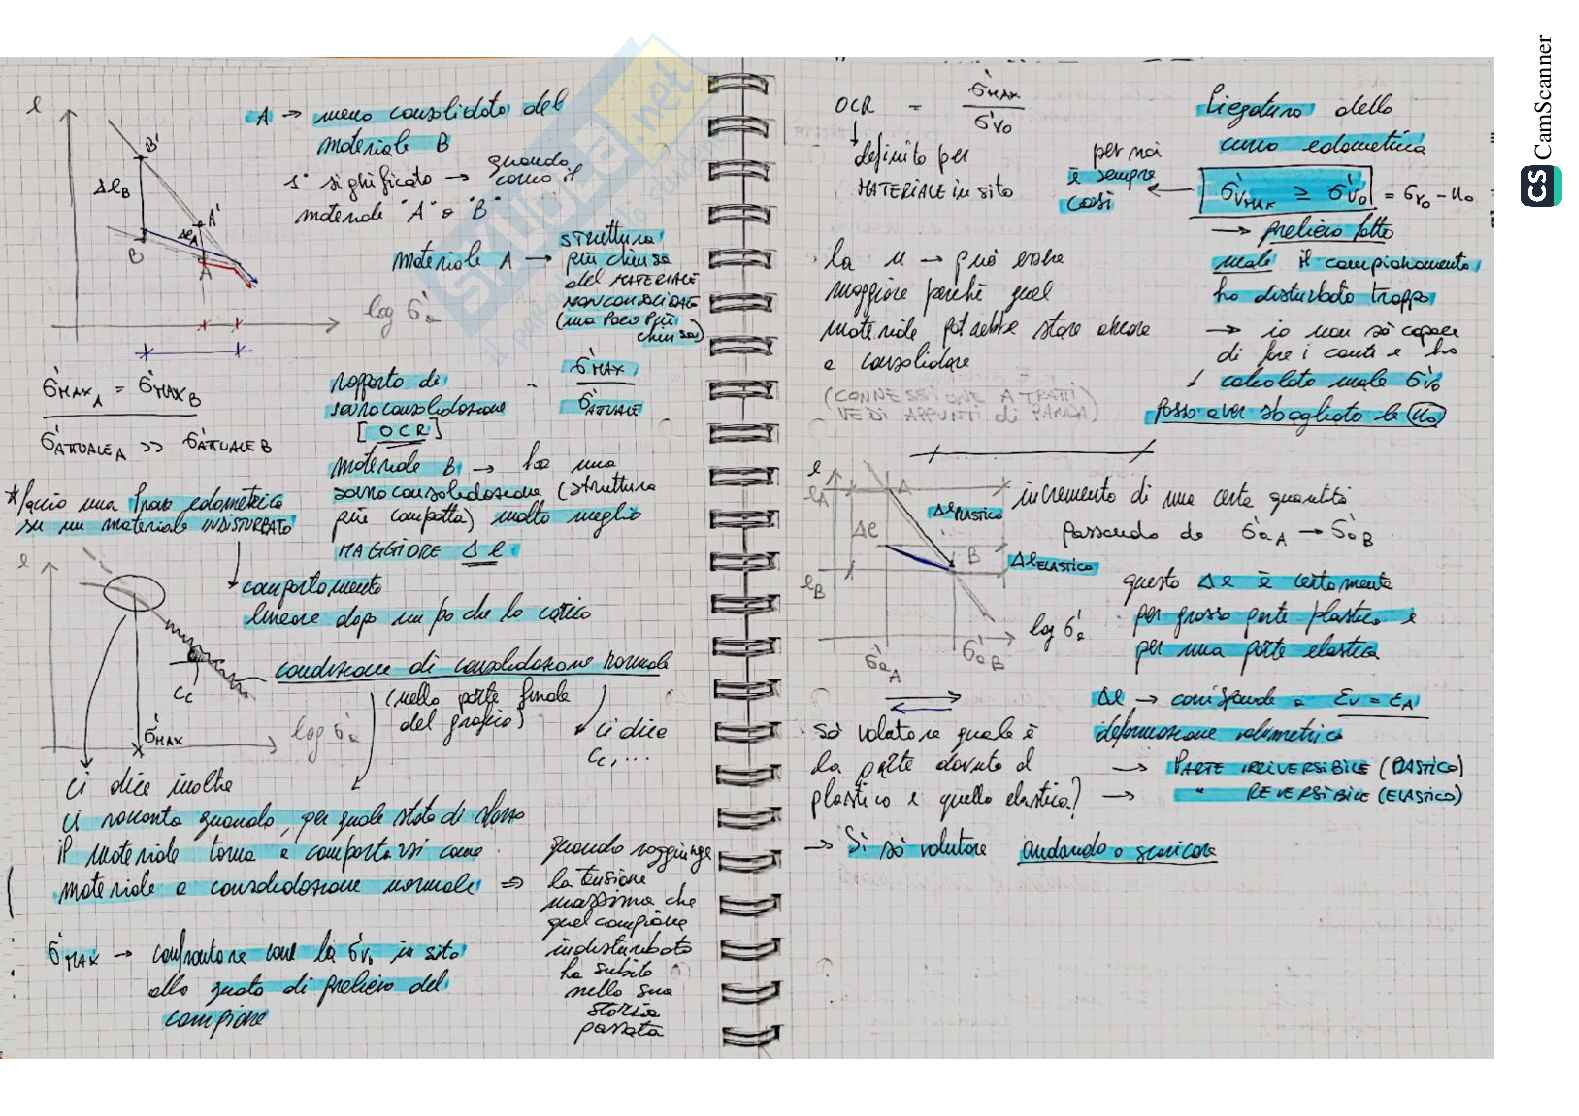 e
A → meno consolidato del
materiale B
1° significato → quando
come il
materiale "A" o "B"
B'
Δe_B
A'
Δe_A
B
A
log σ'a
materiale A → struttura
più chiusa
del MATERIALE
NON CONSOLIDATE
(ma poco più
chiusa)
σ'MAX_A = σ'MAX_B
σ'ATTUALE_A >> σ'ATTUALE B
rapporto di
sovraconsolidazione
[OCR]
σ'MAX
σ'ATTUALE
materiale B → ha una
sovraconsolidazione (struttura
più compatta) molto meglio
MAGGIORE Δe
* faccio una prova edometrica
su un materiale INDISTURBATO
e
comportamento
lineare dopo un po che lo carico
condizione di consolidazione normale
Cc
(nella parte finale
del grafico)
ci dice
Cc, ...
σ'MAX
log σ'a
ci dice inoltre
ci racconta quando, per quale stato di sforzo
il materiale torna a comportarsi come
materiale a consolidazione normale ⇒
quando raggiunge
la tensione
massima che
quel campione
indisturbato
ha subito
nella sua
storia
passata
σ'MAX → confrontare con la σ'v0 in sito
alla quota di prelievo del
campione
OCR = σ'MAX
σ'v0
definito per
MATERIALE in sito
per noi
è sempre
così
Piegatura della
curva edometrica
σ'vMAX ≥ σ'v0 = σv0 - u0
→ prelievo fatto
male il campionamento,
ho disturbato troppo
→ io non so capace
di fare i conti e ho
calcolato male σ'v0
Posso aver sbagliato la u0
la u → può essere
maggiore perché quel
materiale potrebbe stare ancora
a consolidare
(CONNESSIONE A TRATTI
VEDI APPUNTI di PARCA)
e
e_A
A
Δe PLASTICO
Δe
B
Δe ELASTICO
e_B
log σ'a
σ'a_A
σ'a_B
incremento di una certa quantità
passando da σ'a_A → σ'a_B
questo Δe è certamente
per grossa parte plastica e
per una parte elastica
Δe → corrisponde a εv = εA
deformazione volumetrica
→ PARTE IRREVERSIBILE (PLASTICA)
→ " REVERSIBILE (ELASTICA)
so valutare quale è
la parte dovuta al
plastico e quella elastica?
→ Si può valutare andando a scaricare
CS CamScanner
SKUOLA.net